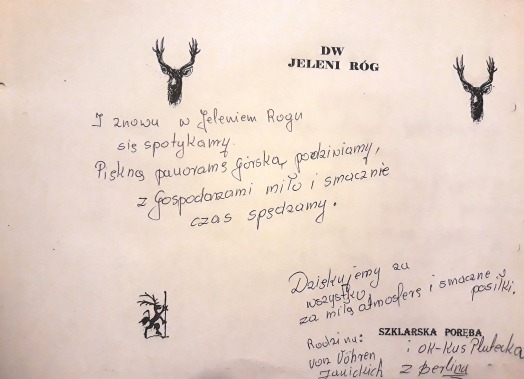 DW
JELENI RÓG
I znowu w Jeleniem Rogu
się spotykamy.
Piękną panoramą górską podziwiamy,
z Gospodarzami miło i smacznie
czas spędzamy.
Dziękujemy za
wszystko,
za miłą atmosferę i smaczne
posiłki.
SZKLARSKA PORĘBA
Rodzina:
von Vöhren
Janickich
i Plutecka
z Berlina